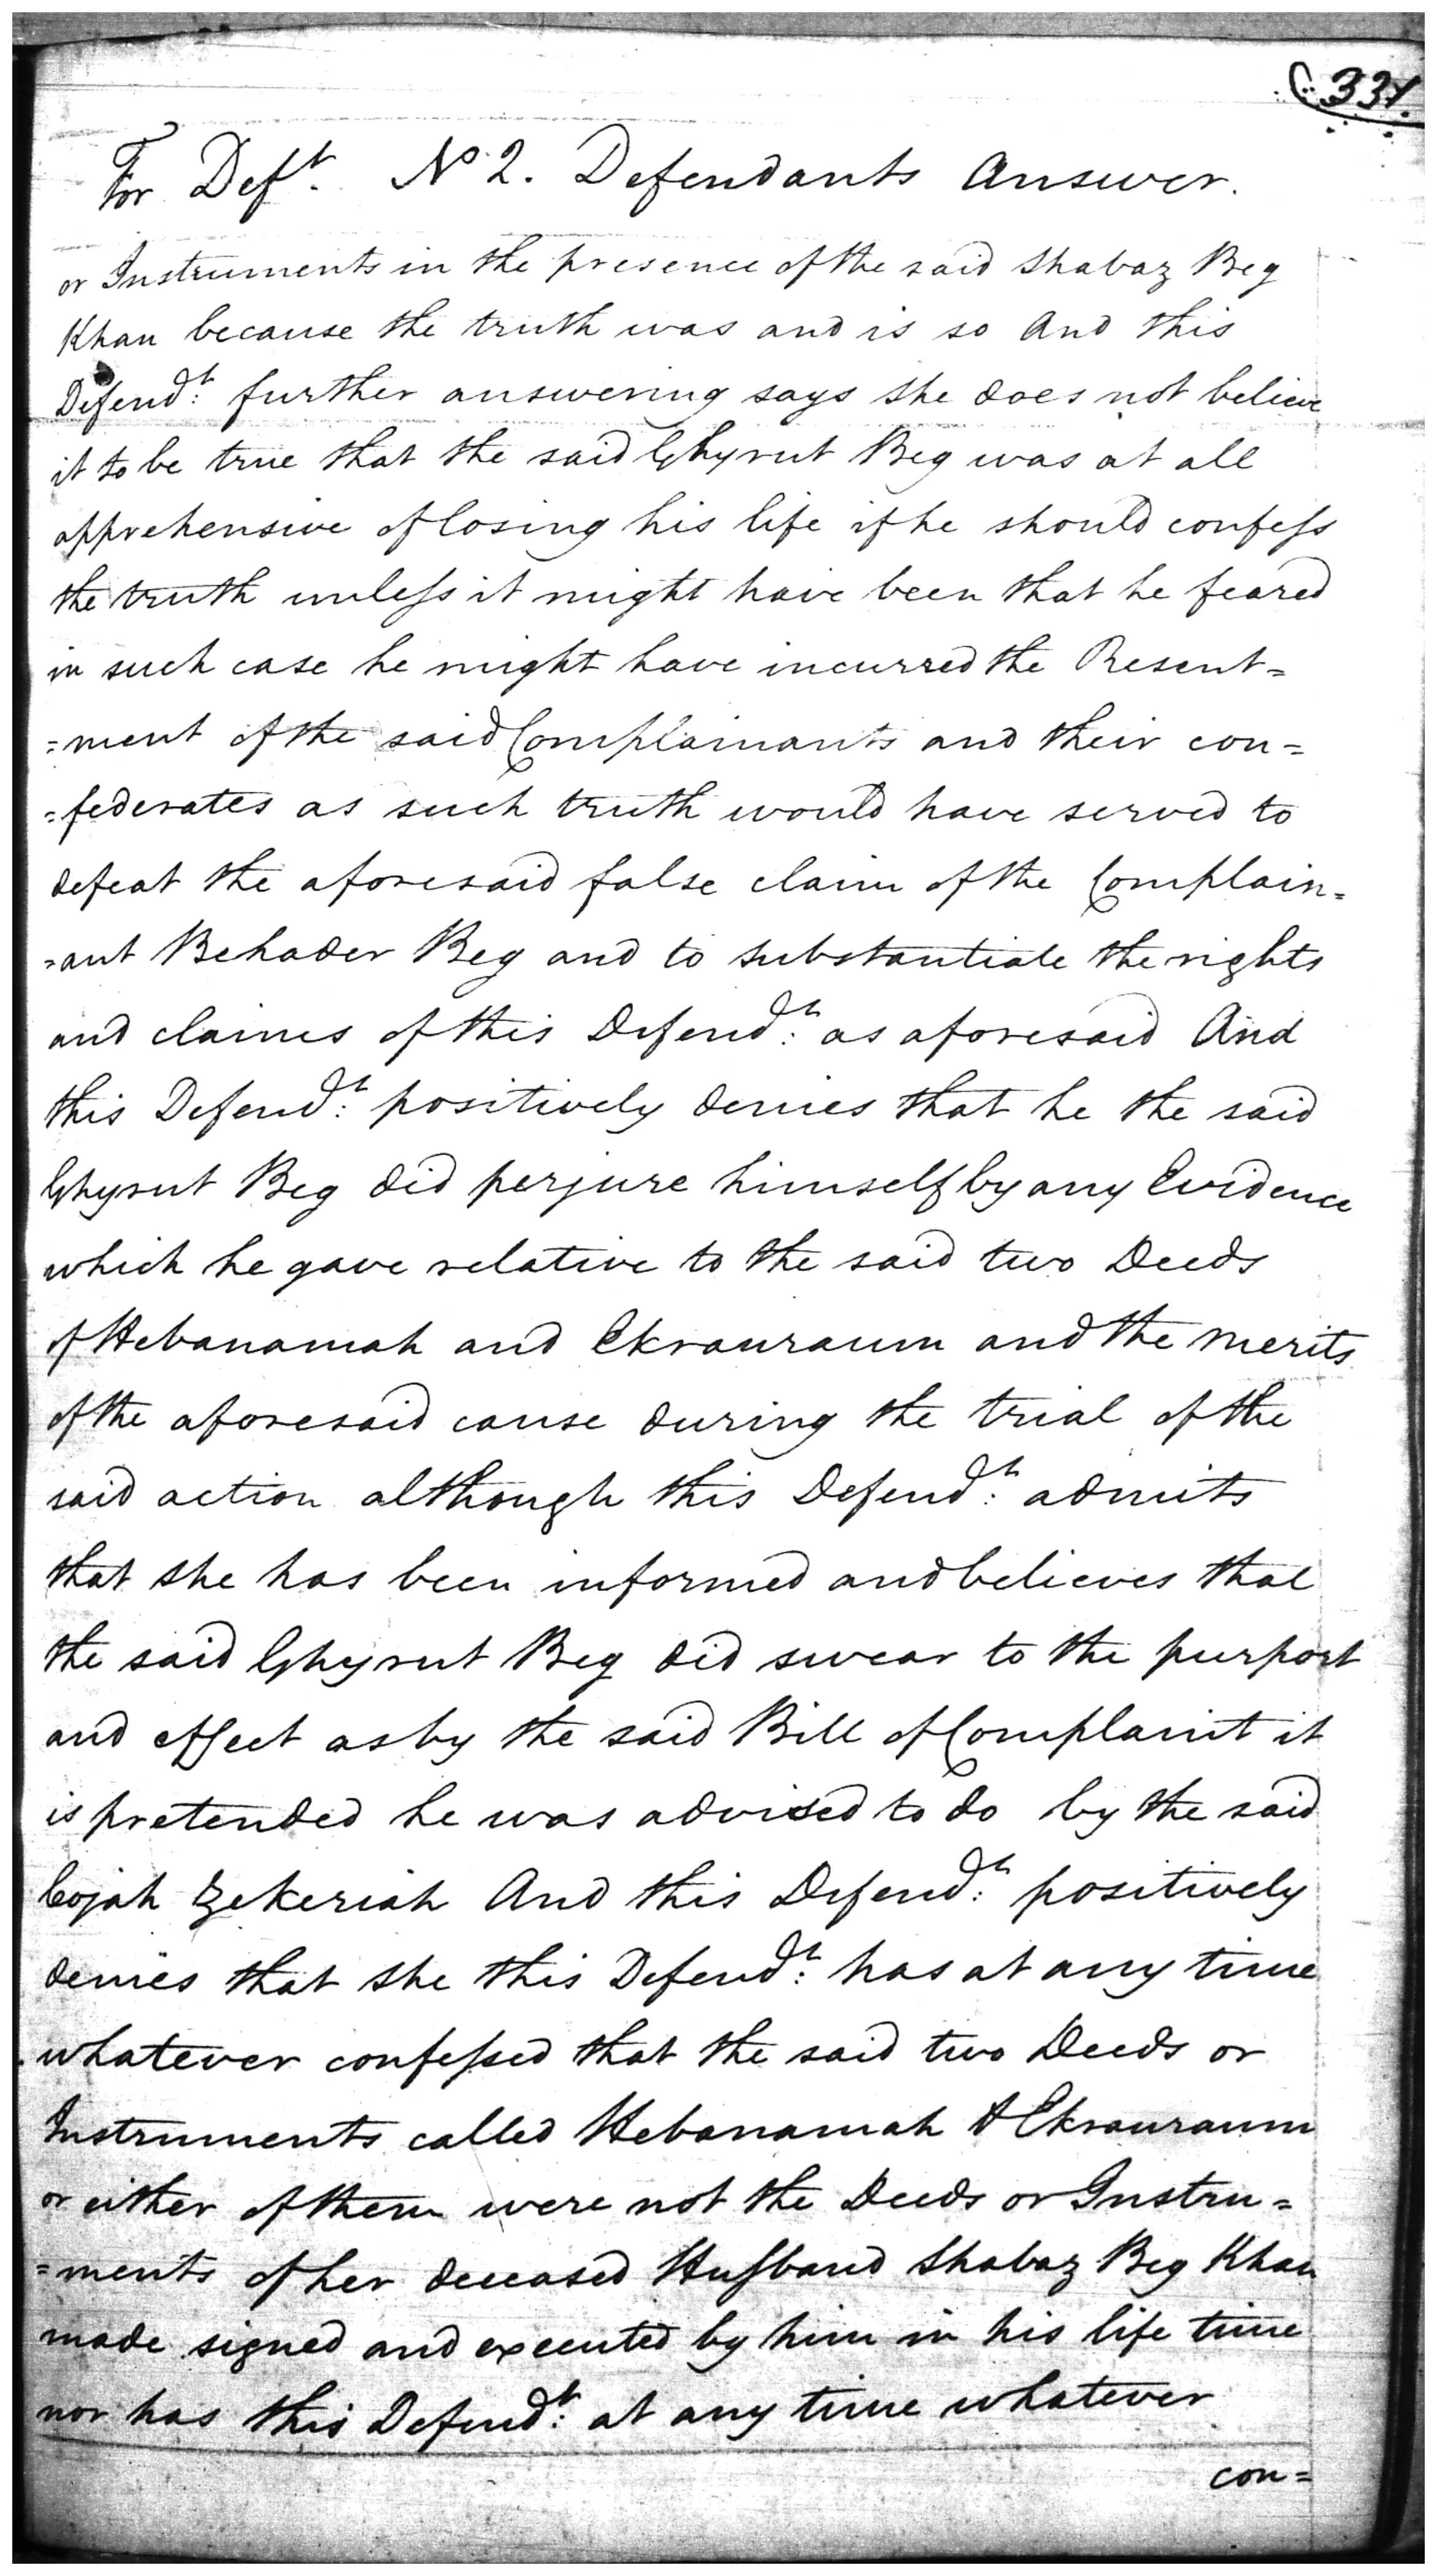 331.
For Deft. No 2. Defendants Answer.
or Instruments in the presence of the said Shabaz Beg
Khan because the truth was and is so And this
Defendt: further answering says she does not believe
it to be true that the said Ghyrut Beg was at all
apprehensive of losing his life if he should confess
the truth unless it might have been that he feared
in such case he might have incurred the Resent=
=ment of the said Complainants and their con=
=federates as such truth would have served to
defeat the aforesaid false claim of the Complain=
=ant Behader Beg and to substantiate the rights
and claims of this Defendt: as aforesaid And
this Defendt: positively denies that he the said
Ghyrut Beg did perjure himself by any Evidence
which he gave relative to the said two Deeds
of Hebanamah and Ekrauraum and the merits
of the aforesaid cause during the trial of the
said action although this Defendt: admits
that she has been informed and believes that
the said Ghyrut Beg did swear to the purport
and effect as by the said Bill of Complaint it
is pretended he was advised to do by the said
Cojah Zekeriah And this Defendt: positively
denies that she this Defendt: has at any time
whatever confessed that the said two Deeds or
Instruments called Hebanamah & Ekrauraum
or either of them were not the Deeds or Instru=
=ments of her deceased Husband Shabaz Beg Khan
made signed and executed by him in his life time
nor has this Defendt: at any time whatever
con=